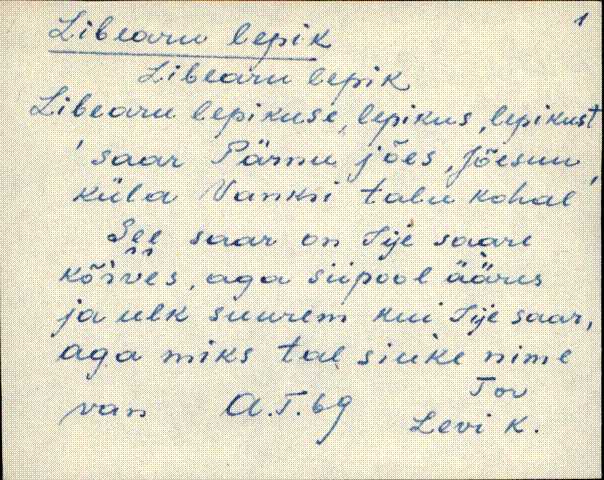 1
Libearu lepik
Libearu lepik
Libearu lepikuse, lepikus, lepikust
'saar Pärnu jões, Jõesuu
küla Vanksi talu kohal'
See saar on Iije saare
kõrves, aga siipool ääres
ja ulk suurem kui Iije saar,
aga miks tal siuke nime
van A.T. 69 Tor
Levi K.